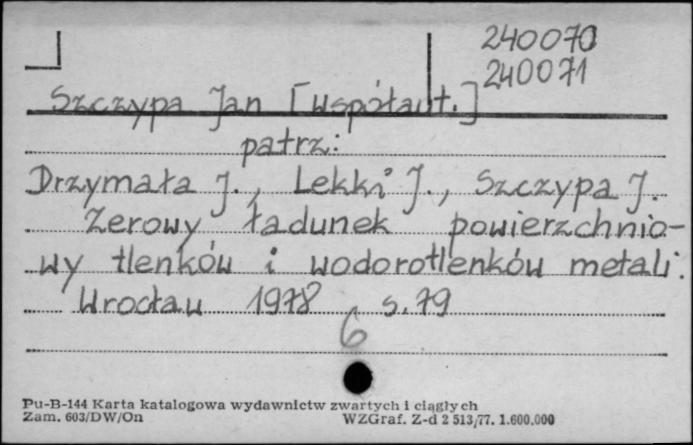 240070
240071
Szczypa Jan [Współaut.]
patrz:
Drzymała J., Lekki J., Szczypa J.
Zerowy ładunek powierzchnio-
wy tlenków i wodorotlenków metali.
Wrocław 1978 s. 79
6
Pu-B-144 Karta katalogowa wydawnictw zwartych i ciągłych
Zam. 603/DW/On WZGraf. Z-d 2 513/77. 1.600.000